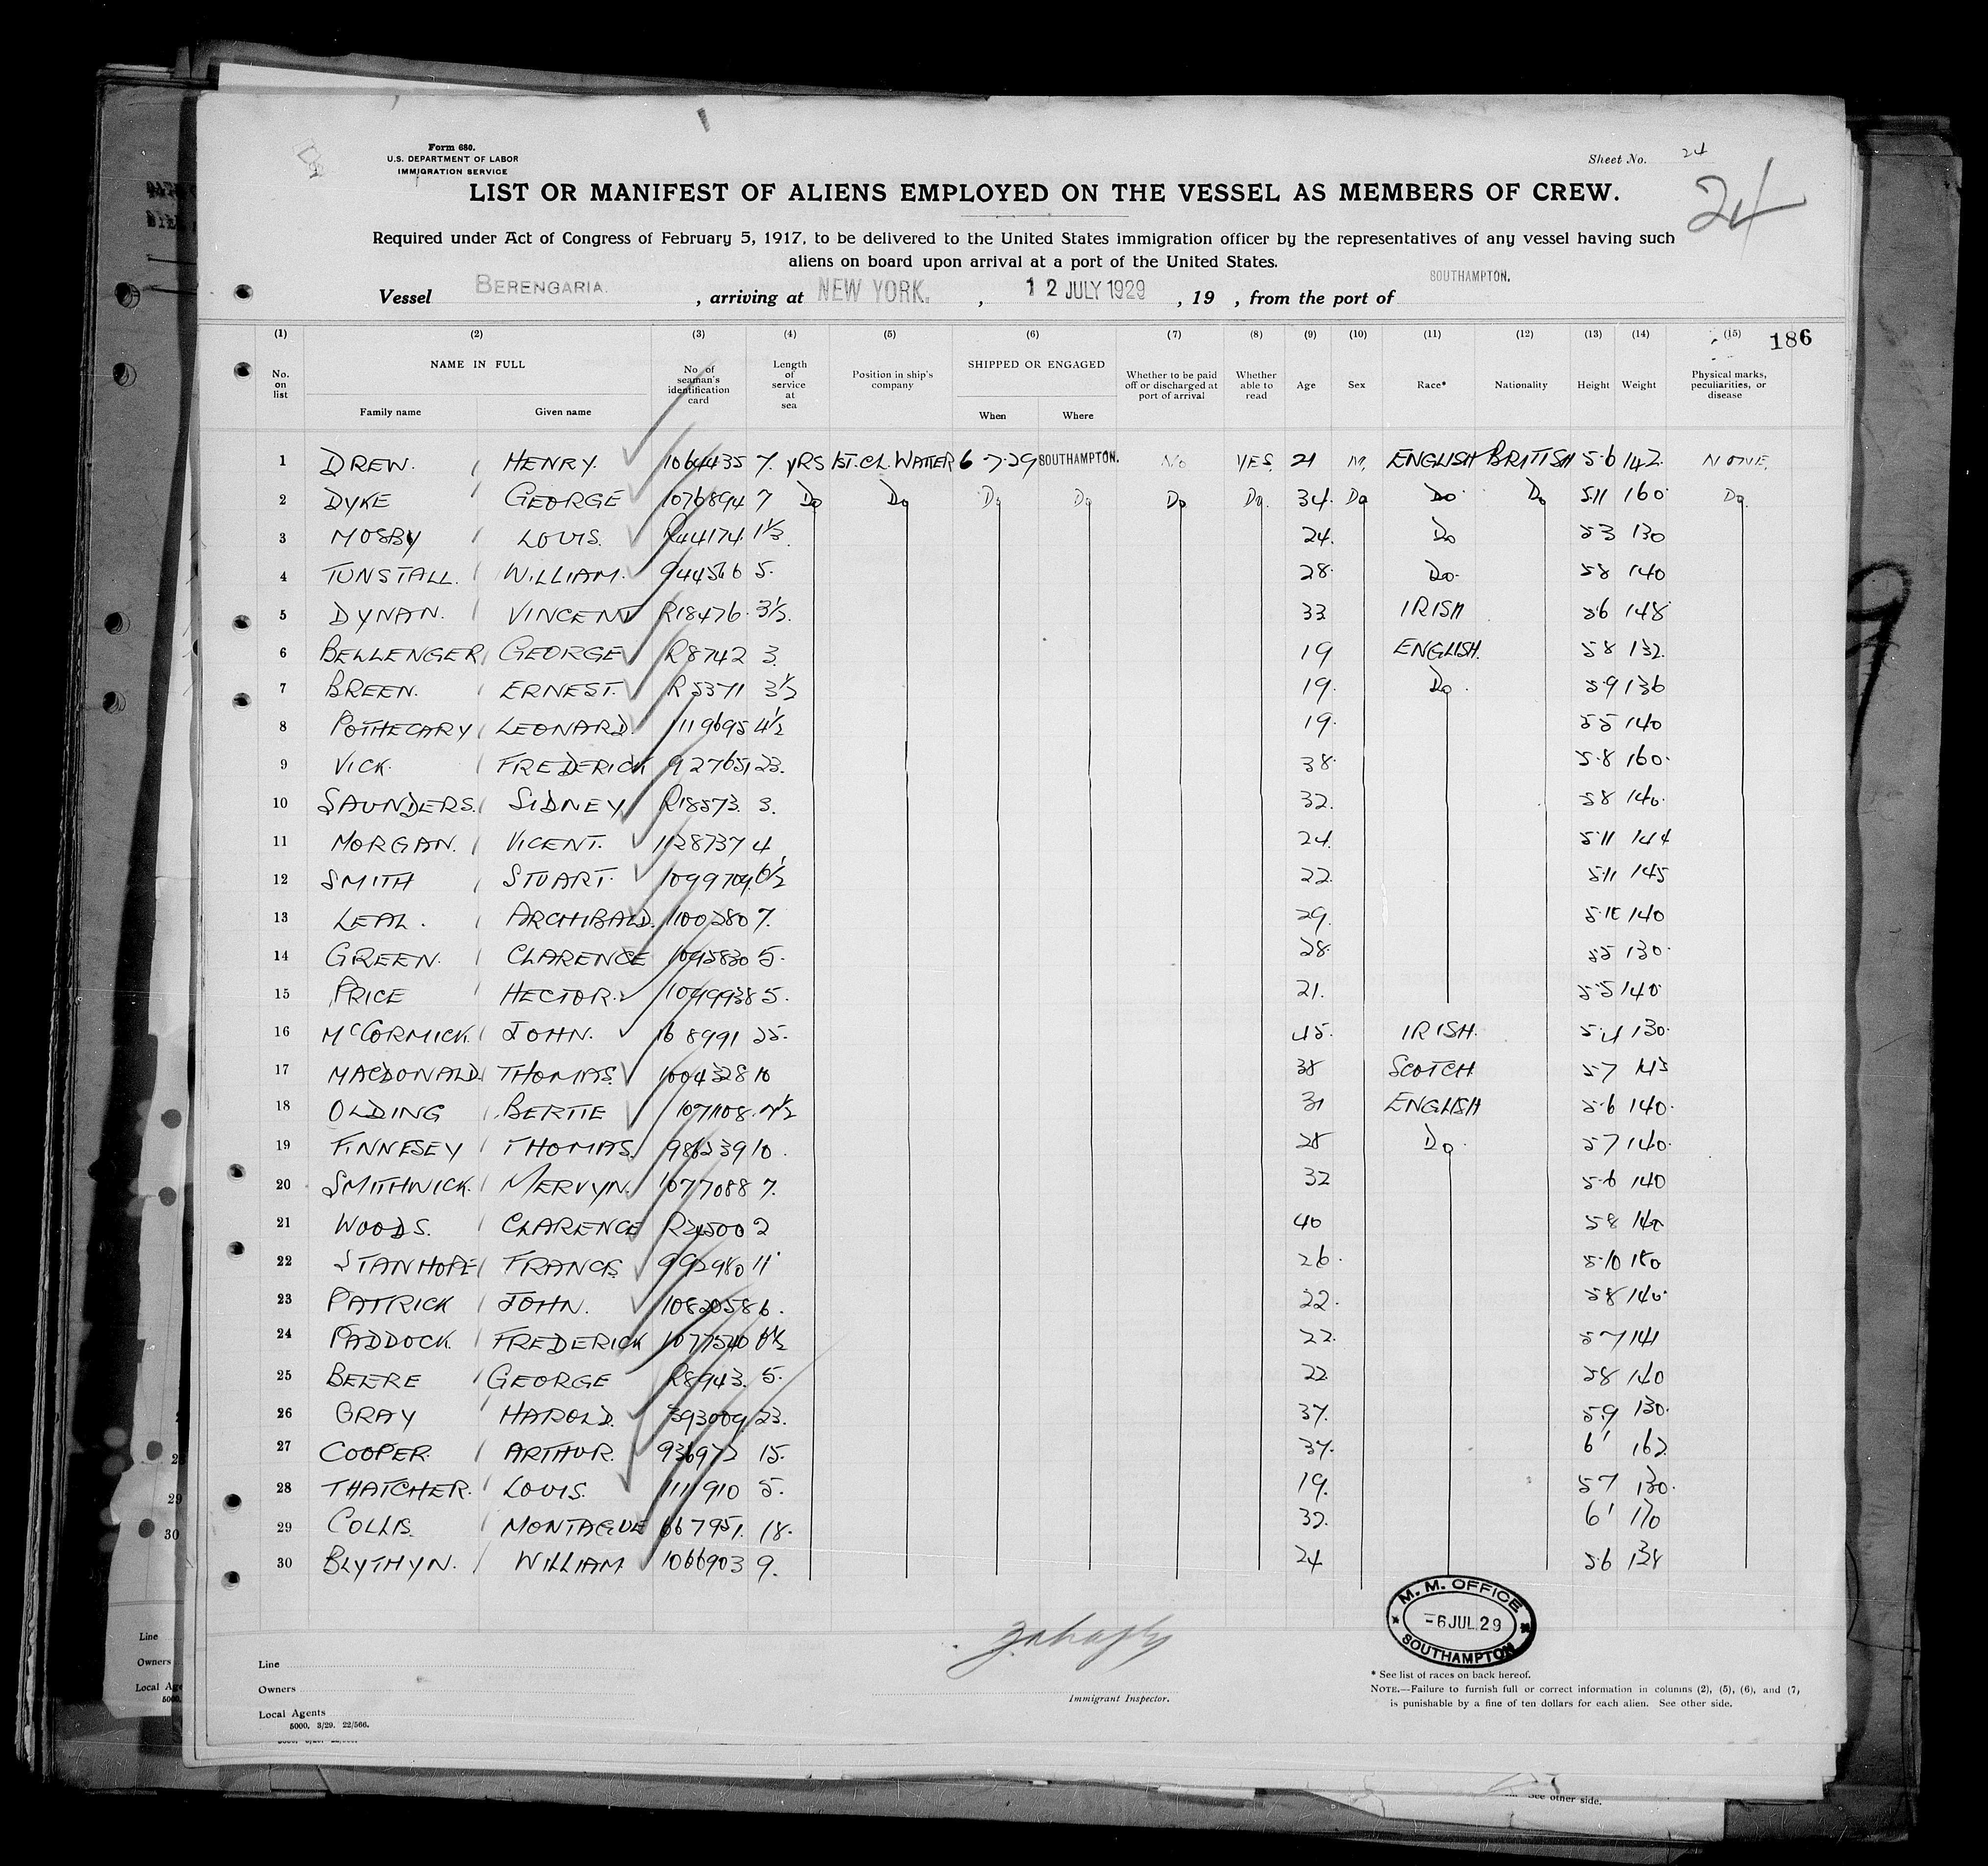 Form 680.
U.S. DEPARTMENT OF LABOR
IMMIGRATION SERVICE
Sheet No. 24
24
LIST OR MANIFEST OF ALIENS EMPLOYED ON THE VESSEL AS MEMBERS OF CREW.
Required under Act of Congress of February 5, 1917, to be delivered to the United States immigration officer by the representatives of any vessel having such
aliens on board upon arrival at a port of the United States.
Vessel BERENGARIA. , arriving at NEW YORK. , 12 JULY 1929 , 19 , from the port of SOUTHAMPTON.
(1) (2) (3) (4) (5) (6) (7) (8) (9) (10) (11) (12) (13) (14) (15) 186
No. on list NAME IN FULL Family name Given name No. of seaman's identification card Length of service at sea Position in ship's company SHIPPED OR ENGAGED When Where Whether to be paid off or discharged at port of arrival Whether able to read Age Sex Race* Nationality Height Weight Physical marks, peculiarities, or disease
1 DREW. HENRY. 1064435 7. YRS 1ST. CL. WAITER 6 7-29 SOUTHAMPTON. No YES 21 M. ENGLISH BRITISH 5-6 142. NONE.
2 DYKE GEORGE 1076894 7 Do Do Do Do Do Do. 34. Do Do. Do 5.11 160. Do.
3 MOSBY LOUIS. R44174. 24. Do 5 3 130
4 TUNSTALL. WILLIAM. 944566 5. 28. Do. 5 8 140
5 DYNAN. VINCENT R18476. 3½. 33 IRISH 5.6 148
6 BELLENGER GEORGE R8742 3. 19 ENGLISH. 5 8 132
7 BREEN. ERNEST. R5371 3½ 19. Do. 5.9 136
8 POTHECARY LEONARD. 1119695 4½ 19. 5 5 140
9 VICK. FREDERICK 927651 23. 38. 5.8 160.
10 SAUNDERS. SIDNEY R18573. 3. 32. 5 8 140.
11 MORGAN. VICENT. 1128737 4 24. 5.11 144
12 SMITH STUART. 1099704 6½ 22. 5.11 145
13 LEAL. ARCHIBALD. 1100280 7. 29. 140
14 GREEN. CLARENCE 1095830 5. 28. 5 5 130.
15 PRICE HECTOR. 1099938 5. 21. 5.5 140.
16 McCORMICK. JOHN. 168991 25. 45. IRISH. 5.4 130.
17 MACDONALD THOMAS. 1004328 10 38 SCOTCH 5.7 145
18 OLDING BERTIE 107108. 31 ENGLISH 5.6 140.
19 FINNESEY THOMAS. 986239 10. 28 Do. 5.7 140.
20 SMITHWICK. MERVYN. 1077088 7. 32 5.6 140
21 WOODS. CLARENCE R24500 2 40 5 8 140
22 STANHOPE FRANCIS 992980 11 26. 5.10 150
23 PATRICK JOHN. 1082058 6. 22. 5 8 140.
24 PADDOCK. FREDERICK 1077540 6½ 22. 5 7 141
25 BEERE GEORGE R8943. 5. 22 5 8 140
26 GRAY HAROLD. 393009 23. 37. 5.9 130.
27 COOPER. ARTHUR. 936972 15. 37. 6' 162
28 THATCHER. LOUIS. 1111910 5. 19. 5 7 130.
29 COLLIS. MONTAGUE 667951. 18. 32. 6' 170
30 BLYTHYN. WILLIAM 1066903 9. 24 5.6 138
M. M. OFFICE
-6 JUL. 29
SOUTHAMPTON
Line
Owners
Local Agents
5000, 3/29. 22/566.
Immigrant Inspector.
* See list of races on back hereof.
NOTE.—Failure to furnish full or correct information in columns (2), (5), (6), and (7,
is punishable by a fine of ten dollars for each alien. See other side.
29
30
Line
Owners
Local Age
5000,
See other side.